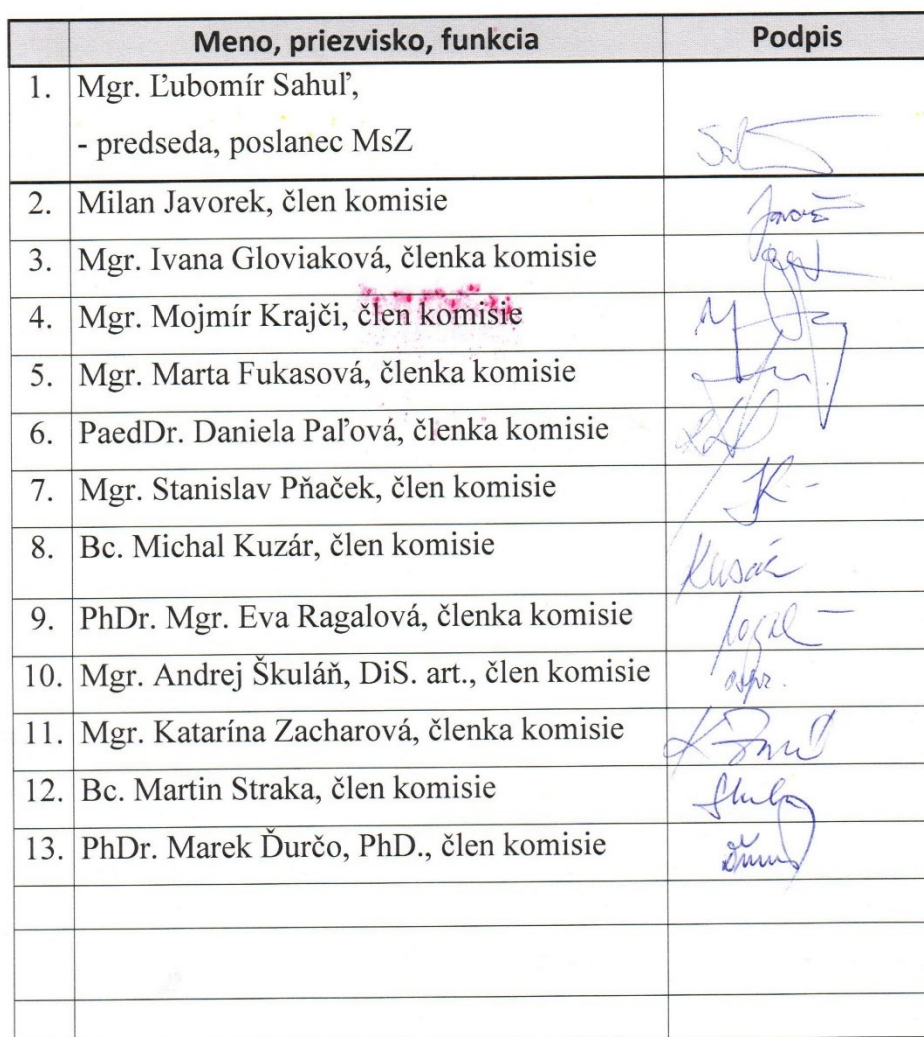 Meno, priezvisko, funkcia Podpis
1. Mgr. Ľubomír Sahuľ,
- predseda, poslanec MsZ
2. Milan Javorek, člen komisie
3. Mgr. Ivana Gloviaková, členka komisie
4. Mgr. Mojmír Krajči, člen komisie
5. Mgr. Marta Fukasová, členka komisie
6. PaedDr. Daniela Paľová, členka komisie
7. Mgr. Stanislav Pňaček, člen komisie
8. Bc. Michal Kuzár, člen komisie
9. PhDr. Mgr. Eva Ragalová, členka komisie
10. Mgr. Andrej Škuláň, DiS. art., člen komisie
11. Mgr. Katarína Zacharová, členka komisie
12. Bc. Martin Straka, člen komisie
13. PhDr. Marek Ďurčo, PhD., člen komisie